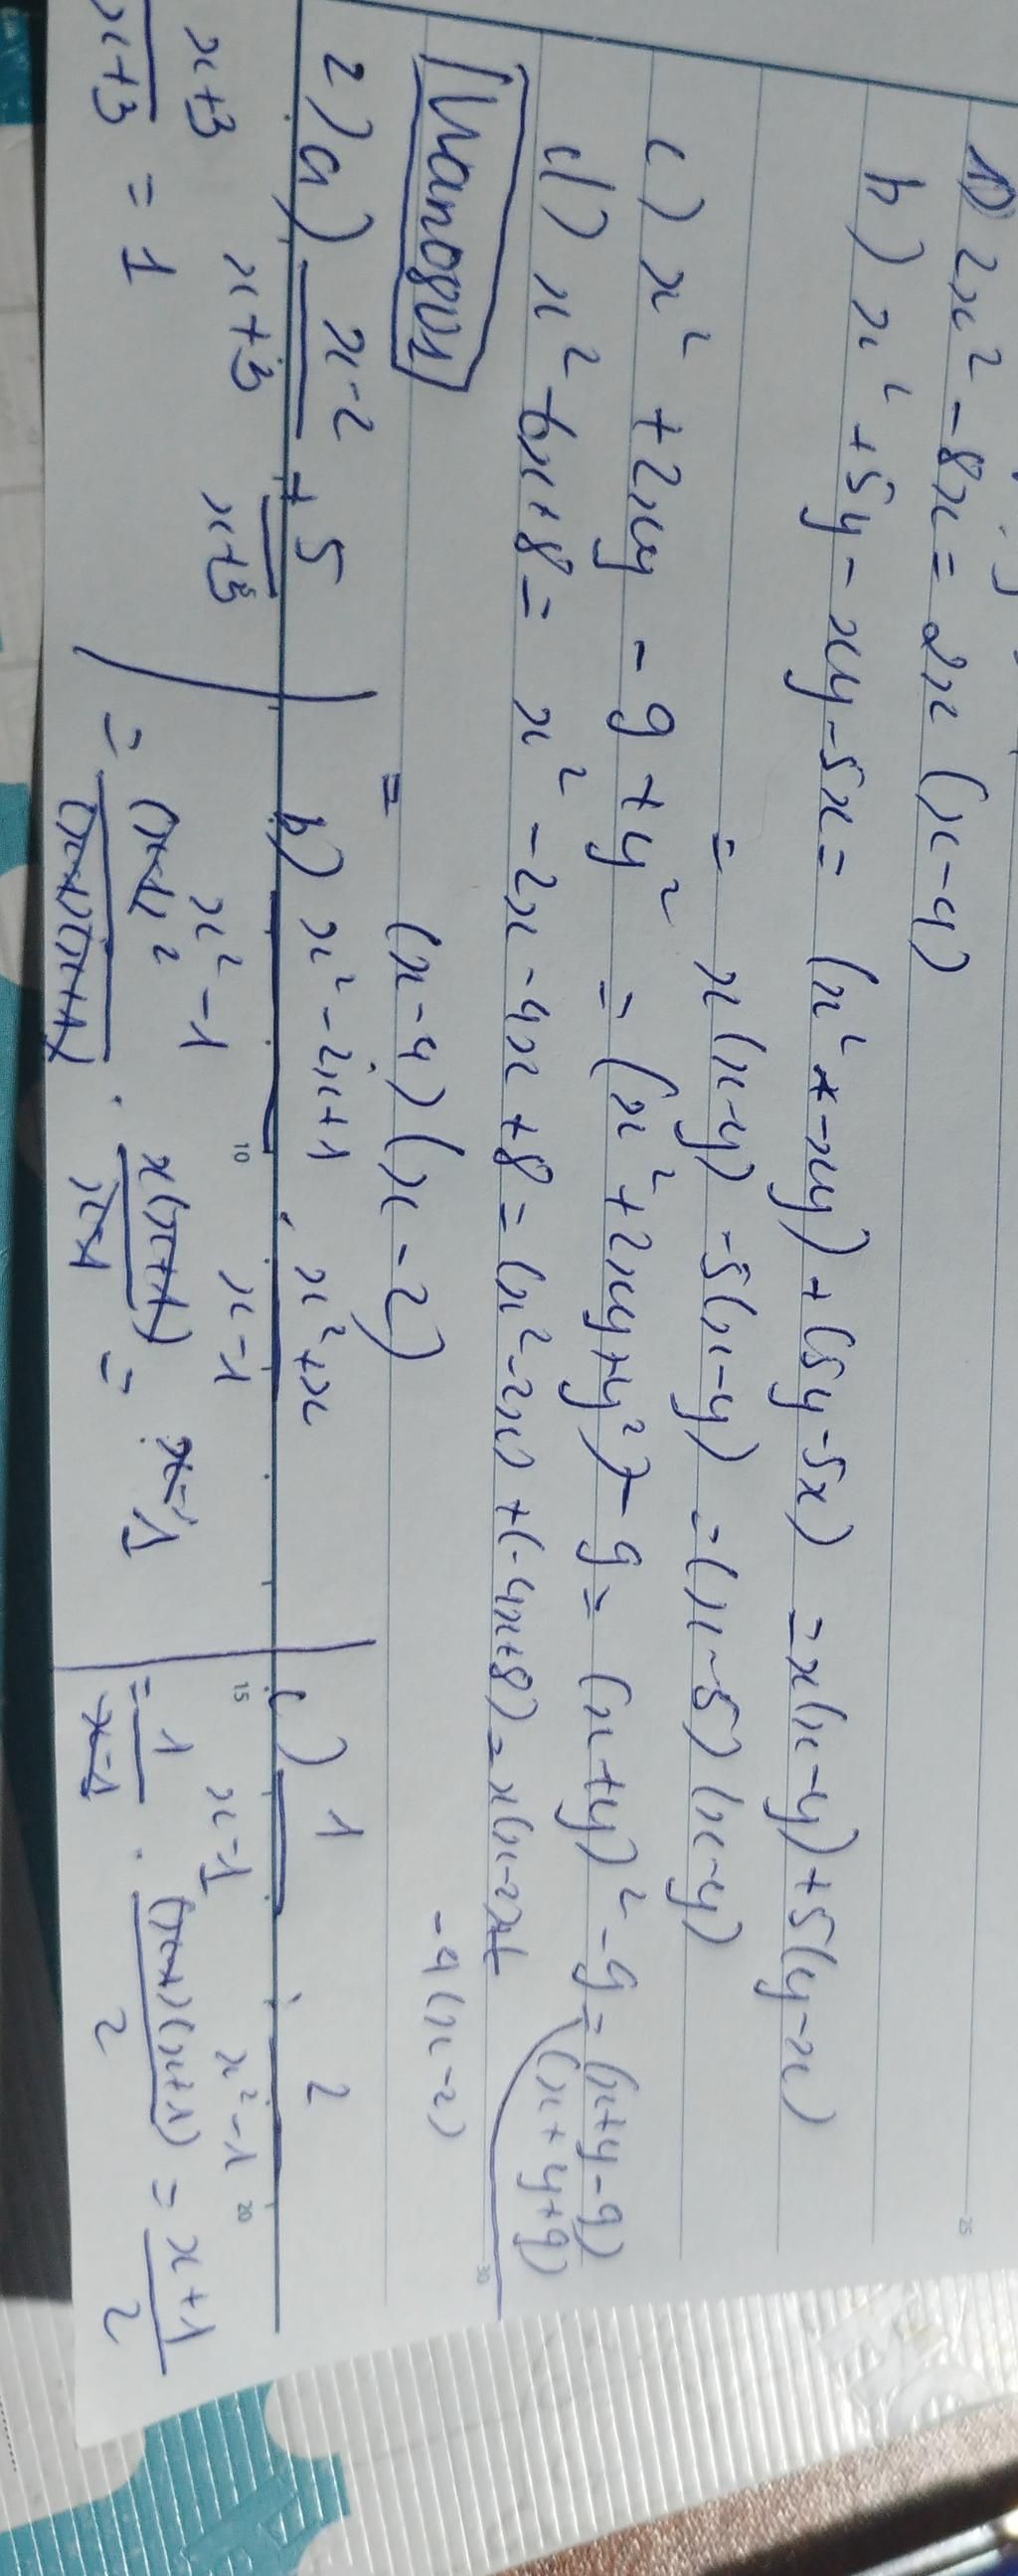 1) 2x² - 8x = 2x (x - 4)
b) x² + 5y - xy - 5x = (x² - xy) + (5y - 5x) = x(x - y) + 5(y - x)
= x(x - y) - 5(x - y) = (x - 5)(x - y)
c) x² + 2xy - 9 + y² = (x² + 2xy + y²) - 9 = (x + y)² - 9 = (x + y - 9)
(x + y + 9)
d) x² - 6x + 8 = x² - 2x - 4x + 8 = (x² - 2x) + (-4x + 8) = x(x - 2)
- 4(x - 2)
= (x - 4)(x - 2)
2) a) x-2 / x+3 + 5 / x+3
x+3 / x+3 = 1
b) x² - 2x + 1 / x² - 1 . x² + x / x - 1
= (x-1)² / (x-1)(x+1) . x(x+1) / x-1 = x
c) 1 / x-1 : 2 / x² - 1
= 1 / x-1 . (x-1)(x+1) / 2 = x+1 / 2
10
15
20
25
30